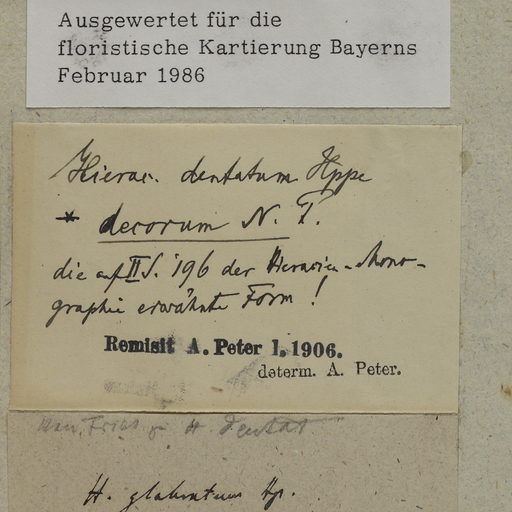 Ausgewertet für die
floristische Kartierung Bayerns
Februar 1986
Hierac. dentatum Hppe
* decorum N. P.
die auf II S. 196 der Hieracien-Mono-
graphie erwähnte Form!
Remisit A. Peter 1. 1906.
determ. A. Peter.
H. dentat
H. glabratum Hp.